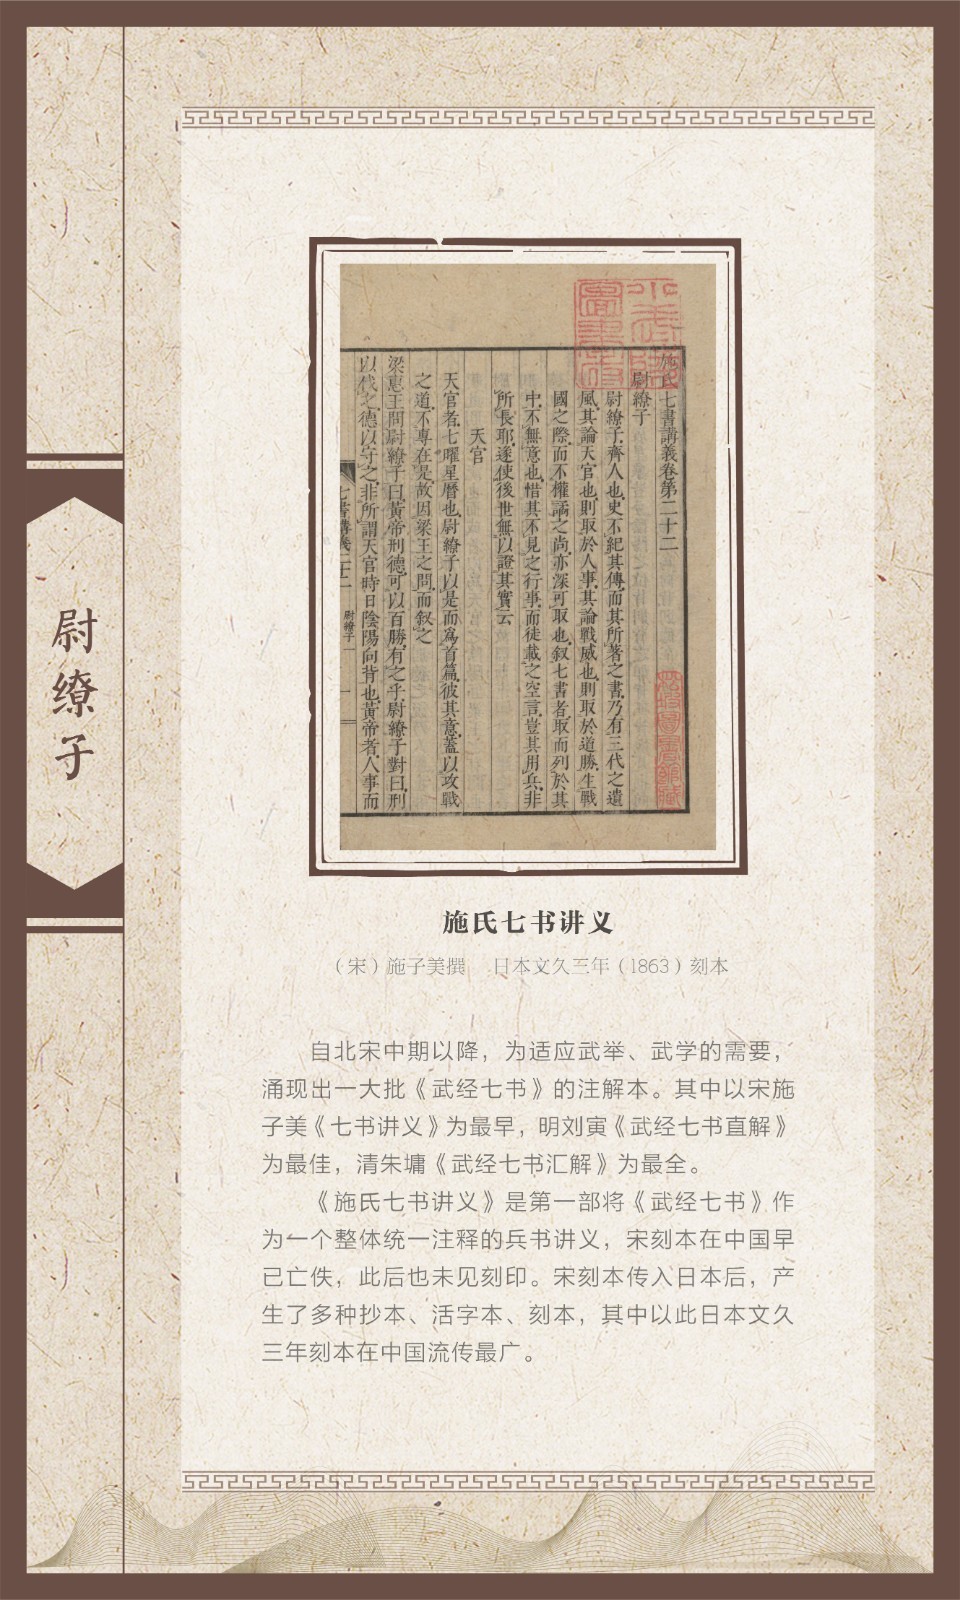 尉缭子
施氏七書講義卷第二十二
尉繚子
尉繚子齊人也史不紀其傳而其所著之書乃有三代之遺
風其論天官也則取於人事其論戰威也則取於道勝生戰
國之際而不權譎之尚亦深可取也叙七書者取而列於其
中不無意也惜其不見之行事而徒載之空言豈其用兵非
所長耶遂使後世無以證其實云
天官
天官者七曜星曆也尉繚子以是而爲首篇彼其意蓋以攻戰
之道不專在是故因梁王之問而叙之
梁惠王問尉繚子曰黃帝刑德可以百勝有之乎尉繚子對曰刑
以伐之德以守之非所謂天官時日陰陽向背也黃帝者人事而
七書講義二十二 尉繚子 一
施氏七书讲义
（宋）施子美撰 日本文久三年（1863）刻本
自北宋中期以降，为适应武举、武学的需要，
涌现出一大批《武经七书》的注解本。其中以宋施
子美《七书讲义》为最早，明刘寅《武经七书直解》
为最佳，清朱墉《武经七书汇解》为最全。
《施氏七书讲义》是第一部将《武经七书》作
为一个整体统一注释的兵书讲义，宋刻本在中国早
已亡佚，此后也未见刻印。宋刻本传入日本后，产
生了多种抄本、活字本、刻本，其中以此日本文久
三年刻本在中国流传最广。